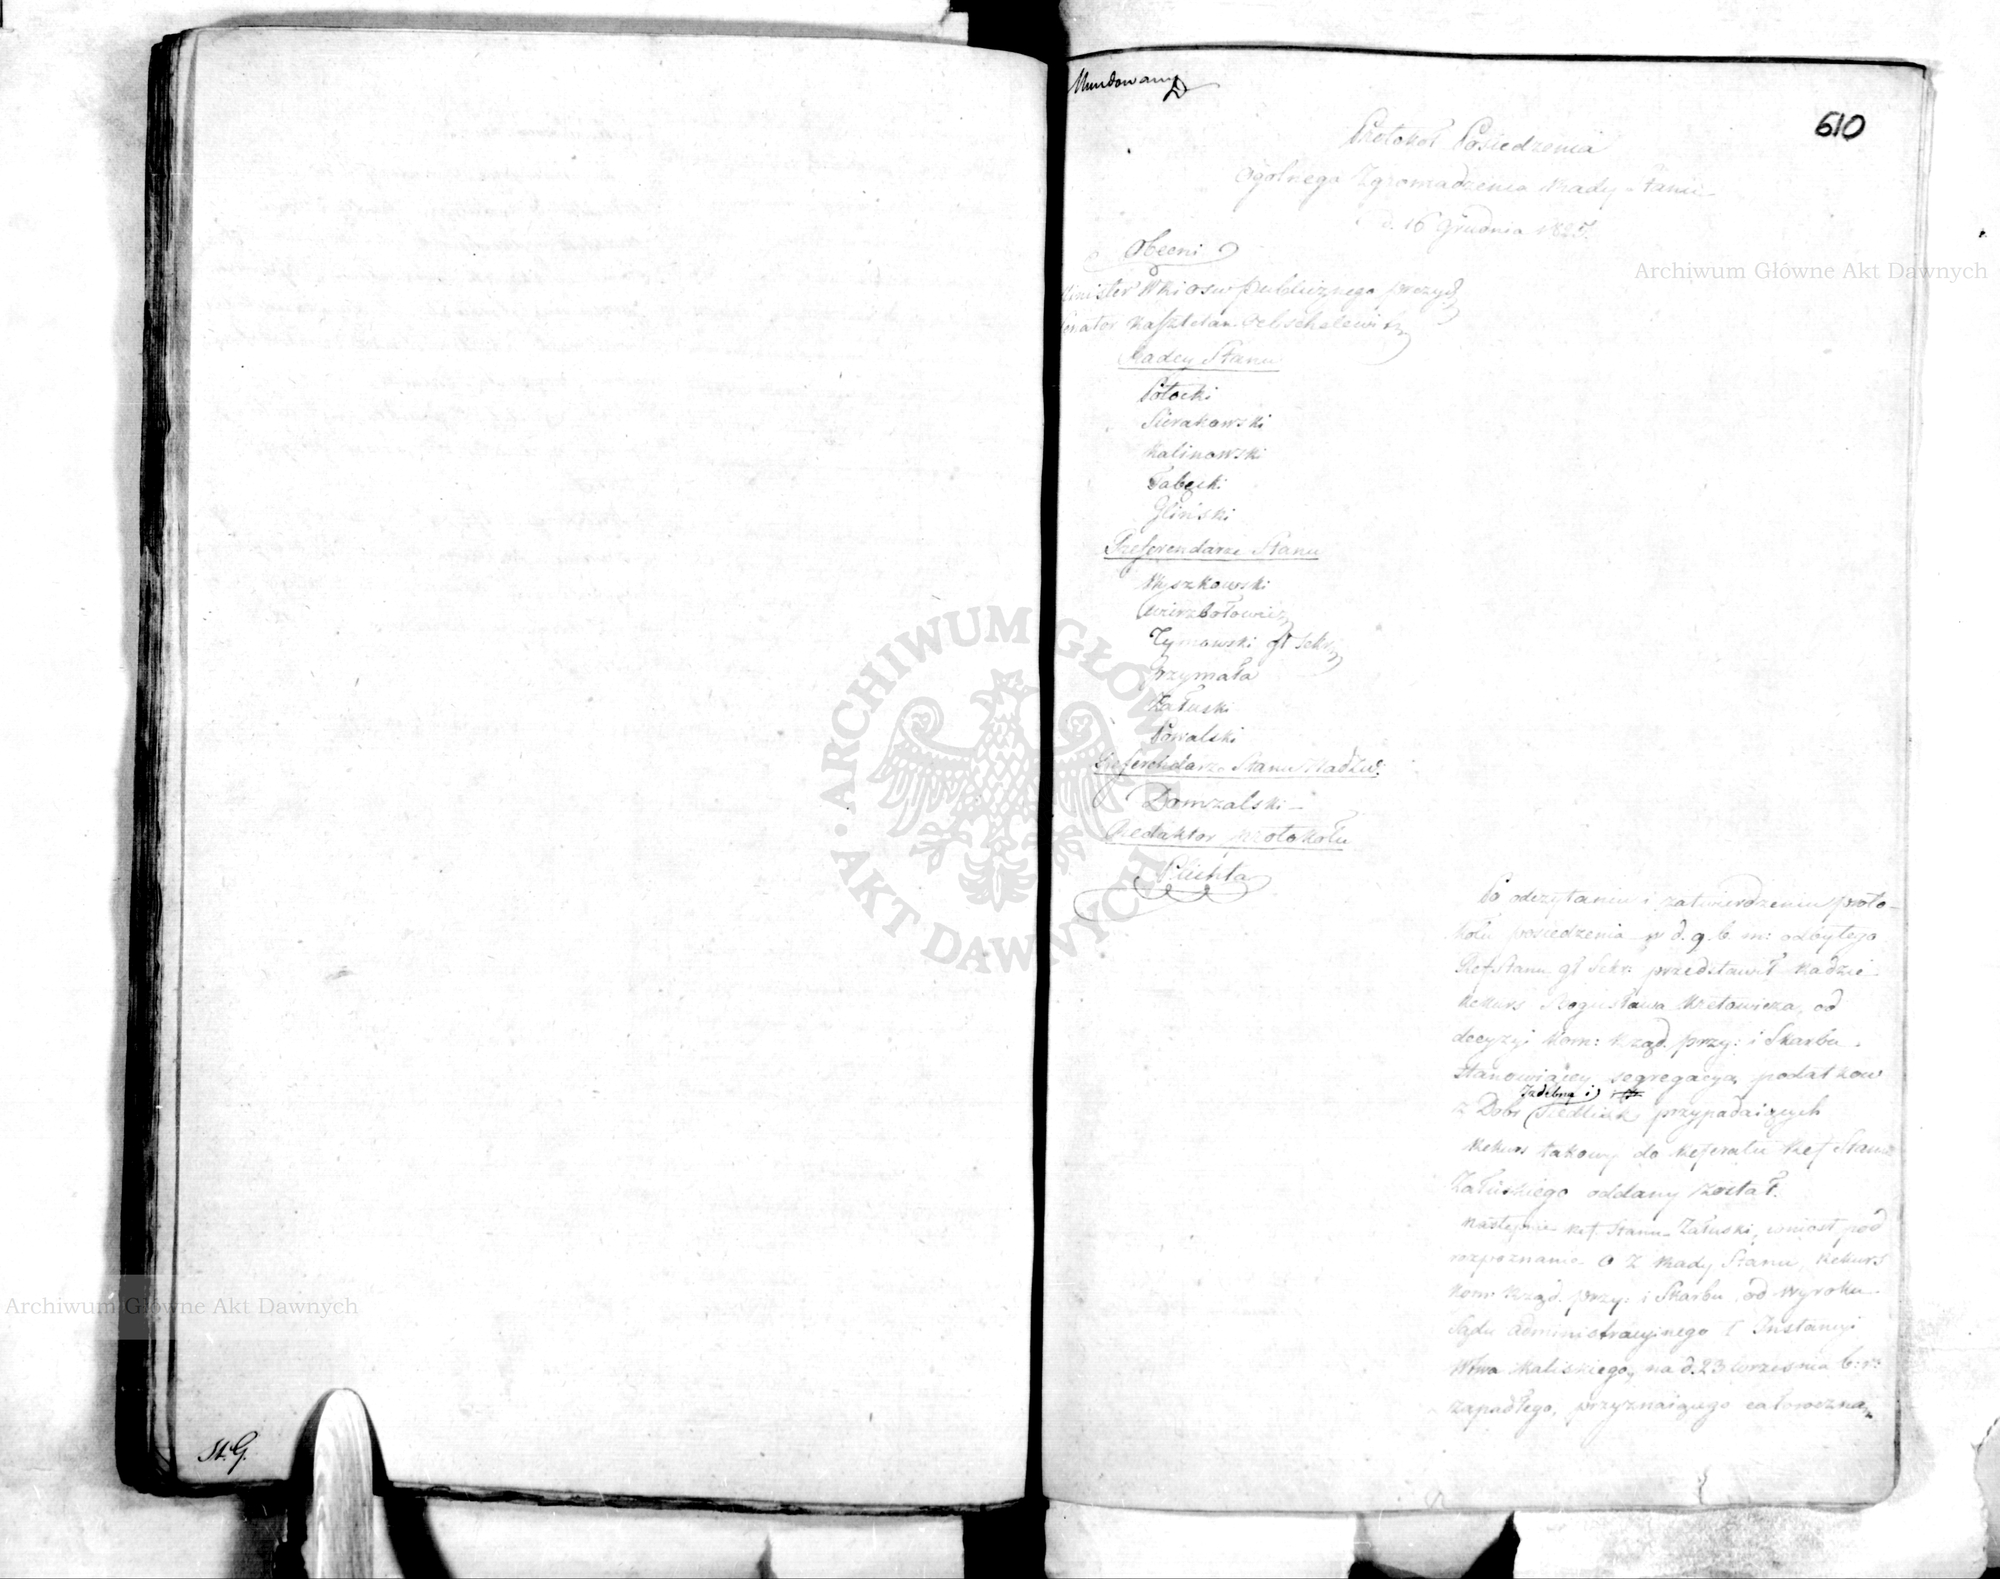 Mundowany
610
Protokół Posiedzenia
Ogólnego Zgromadzenia Rady Stanu
d. 16 Grudnia 182
Obecni
Minister WR i Osw publicznego prezyd
Senator Kasztelan
Radcy Stanu
Potocki
Sierakowski
Kalinowski
Łabęcki
Gliński
Referendarze Stanu
Wyszkowski
Wierzbołowicz
Tymowski gł Sekr
Grzymała
Załuski
Kowalski
Referendarz Stanu Nadzw:
Domzalski
Redaktor protokołu
Plichta
Po odczytaniu i zatwierdzeniu proto-
kołu posiedzenia w d. 9. b. m: odbytego
Ref Stanu gł Sekr: przedstawił Radzie
Rekurs Bogusława od
decyzyi Kom: Rząd. przy: i Skarbu
stanowiącey segregacyą podatkow
Izdebna i
z Dobr przypadaiących
Rekurs takowy do Referatu Ref Stanu
Załuskiego oddany został.
Następnie Ref. Stanu Załuski, wniosł pod
rozpoznanie O Z Rady Stanu, Rekurs
Kom Rząd. przy: i Skarbu od wyroku
Sądu Administracyinego I Instancyi
Wtwa Kaliskiego, na d. 23 Września b: r:
zapadłego, przyznaiącego całoroczną
St. G.
Archiwum Główne Akt Dawnych
Archiwum Główne Akt Dawnych
ARCHIWUM GŁÓWNE AKT DAWNYCH